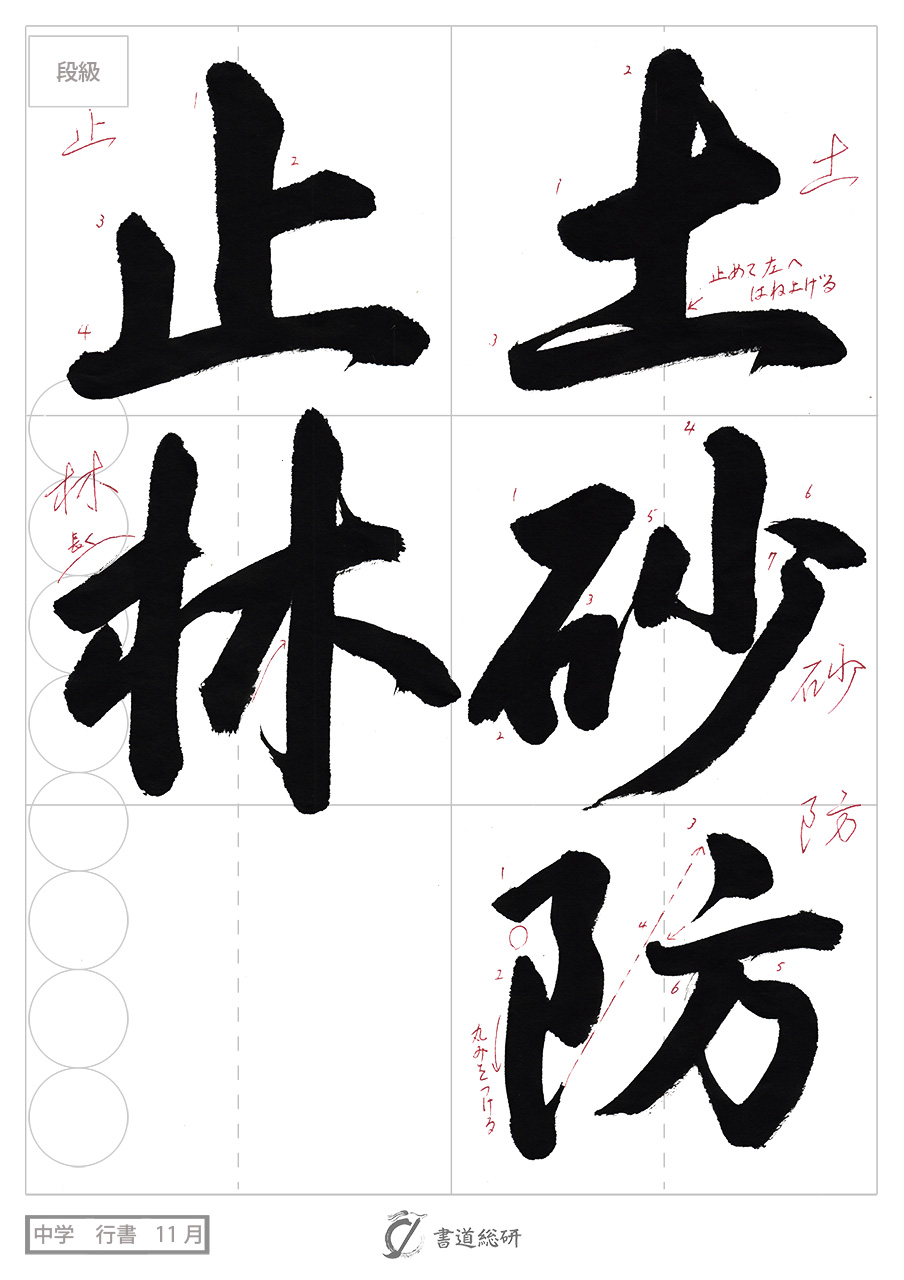 土
砂
防
止
林
段級
土
止めて左へ
はね上げる
砂
防
丸みをつける
止
林
長く
1
2
3
1
2
3
4
5
6
7
1
2
3
4
5
6
1
2
3
4
中学 行書 11月
書道総研